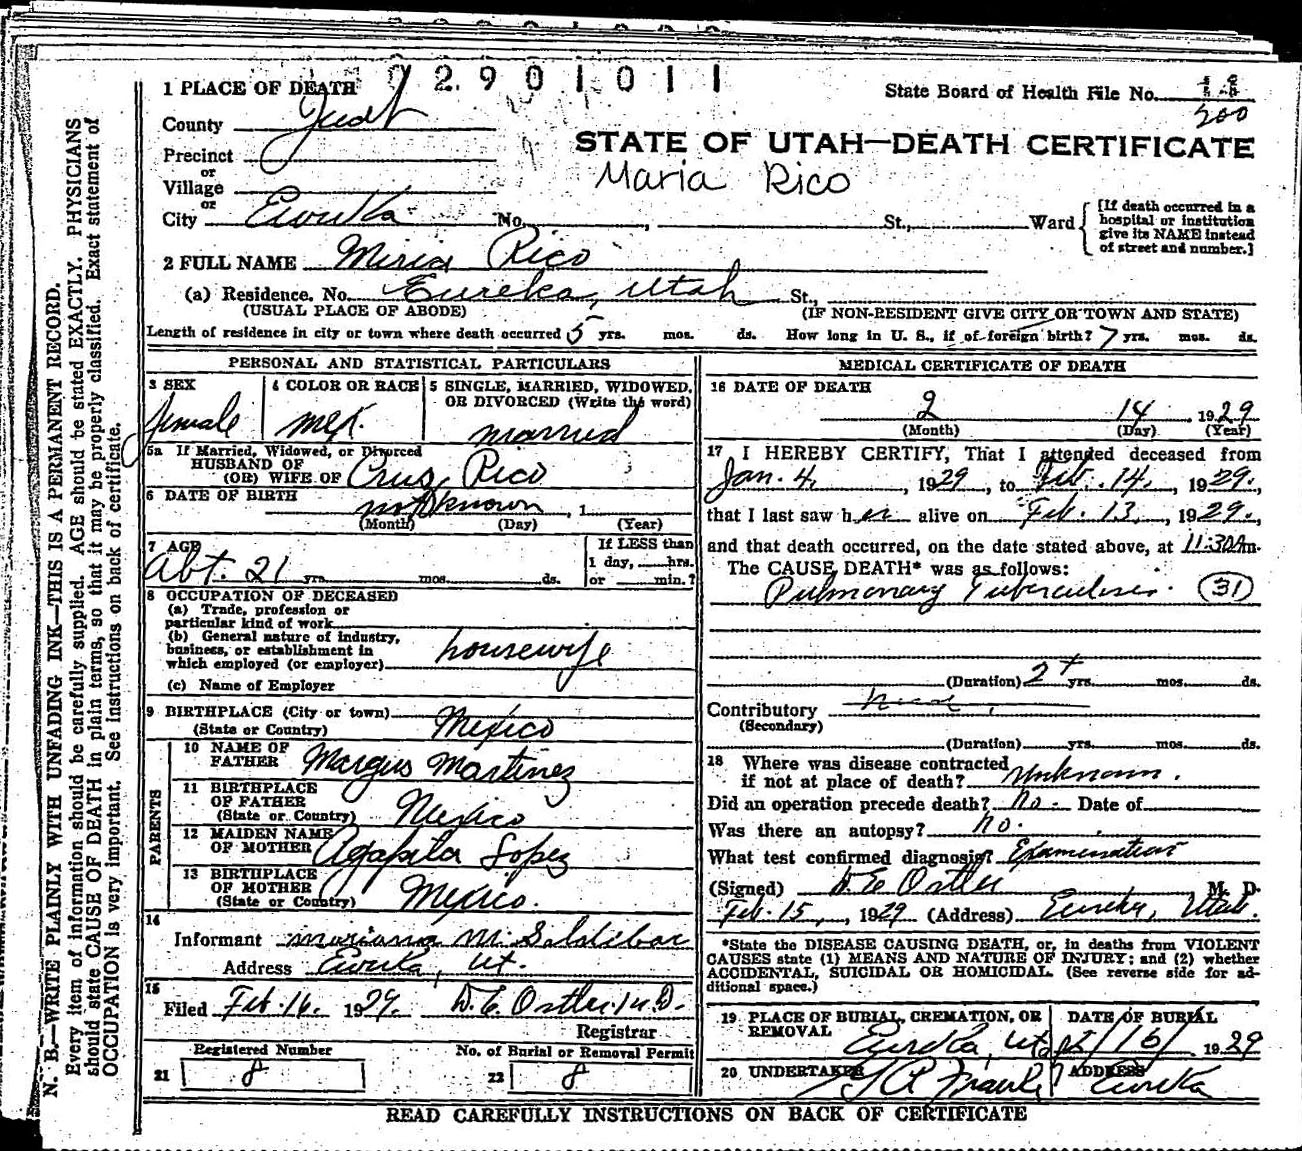 2901011
1 PLACE OF DEATH
State Board of Health File No.
200
County Juab
STATE OF UTAH—DEATH CERTIFICATE
Precinct
or
Maria Rico
Village
or
City Eureka No. , St., Ward
[If death occurred in a hospital or institution give its NAME instead of street and number.]
2 FULL NAME Miria Rico
(a) Residence. No. Eureka, Utah St.,
(USUAL PLACE OF ABODE) (IF NON-RESIDENT GIVE CITY OR TOWN AND STATE)
Length of residence in city or town where death occurred 5 yrs. mos. ds. How long in U. S., if of foreign birth? 7 yrs. mos. ds.
PERSONAL AND STATISTICAL PARTICULARS
3 SEX
female
4 COLOR OR RACE
mex.
5 SINGLE, MARRIED, WIDOWED, OR DIVORCED (Write the word)
married
5a If Married, Widowed, or Divorced
HUSBAND OF
(OR) WIFE OF Crus Rico
6 DATE OF BIRTH
not known , 1
(Month) (Day) (Year)
7 AGE
Abt. 21 yrs. mos. ds.
If LESS than
1 day, hrs.
or min.?
8 OCCUPATION OF DECEASED
(a) Trade, profession or
particular kind of work
(b) General nature of industry,
business, or establishment in
which employed (or employer) housewife
(c) Name of Employer
9 BIRTHPLACE (City or town)
(State or Country) Mexico
PARENTS
10 NAME OF
FATHER Margus Martinez
11 BIRTHPLACE
OF FATHER
(State or Country) Mexico
12 MAIDEN NAME
OF MOTHER Agapita Lopez
13 BIRTHPLACE
OF MOTHER
(State or Country) Mexico.
14
Informant Mariana M. Saldibar
Address Eureka, Ut.
15
Filed Feb. 16. 1929. D. E. Ostler M.D.
Registrar
Registered Number
21 8
No. of Burial or Removal Permit
22 8
MEDICAL CERTIFICATE OF DEATH
16 DATE OF DEATH
2 14 , 1929
(Month) (Day) (Year)
17 I HEREBY CERTIFY, That I attended deceased from
Jan. 4, , 1929, to Feb. 14, , 1929.,
that I last saw her alive on Feb. 13, , 1929.,
and that death occurred, on the date stated above, at 11:30 Am.
The CAUSE DEATH* was as follows:
Pulmonary Tuberculosis. (31)
(Duration) 2+ yrs. mos. ds.
Contributory
(Secondary)
(Duration) yrs. mos. ds.
18 Where was disease contracted
if not at place of death? Unknown.
Did an operation precede death? No. Date of
Was there an autopsy? No.
What test confirmed diagnosis? Examination
(Signed) D. E. Ostler M. D.
Feb. 15, , 1929 (Address) Eureka, Utah.
*State the DISEASE CAUSING DEATH, or, in deaths from VIOLENT
CAUSES state (1) MEANS AND NATURE OF INJURY; and (2) whether
ACCIDENTAL, SUICIDAL OR HOMICIDAL. (See reverse side for ad-
ditional space.)
19 PLACE OF BURIAL, CREMATION, OR
REMOVAL Eureka, Utah
DATE OF BURIAL
2/16/ 1929
20 UNDERTAKER
ADDRESS
Eureka
READ CAREFULLY INSTRUCTIONS ON BACK OF CERTIFICATE
N. B.—WRITE PLAINLY WITH UNFADING INK—THIS IS A PERMANENT RECORD.
Every item of information should be carefully supplied. AGE should be stated EXACTLY. PHYSICIANS
should state CAUSE OF DEATH in plain terms, so that it may be properly classified. Exact statement of
OCCUPATION is very important. See instructions on back of certificate.